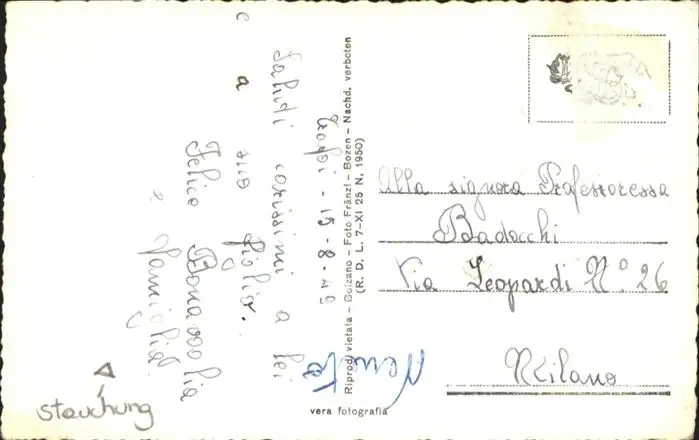 Trafoi - 15-8-49
Saluti carissimi a lei
e a sua figlia.
Felice Bonassolia
e famiglia
Riprod. vietata - Bolzano - Foto Fränzl - Bozen - Nachd. verboten
(R. D. L. 7-XI 25 N. 1950)
Alla signora Professoressa
Badocchi
Via Leopardi N.° 26
Milano
vera fotografia
Stauchung